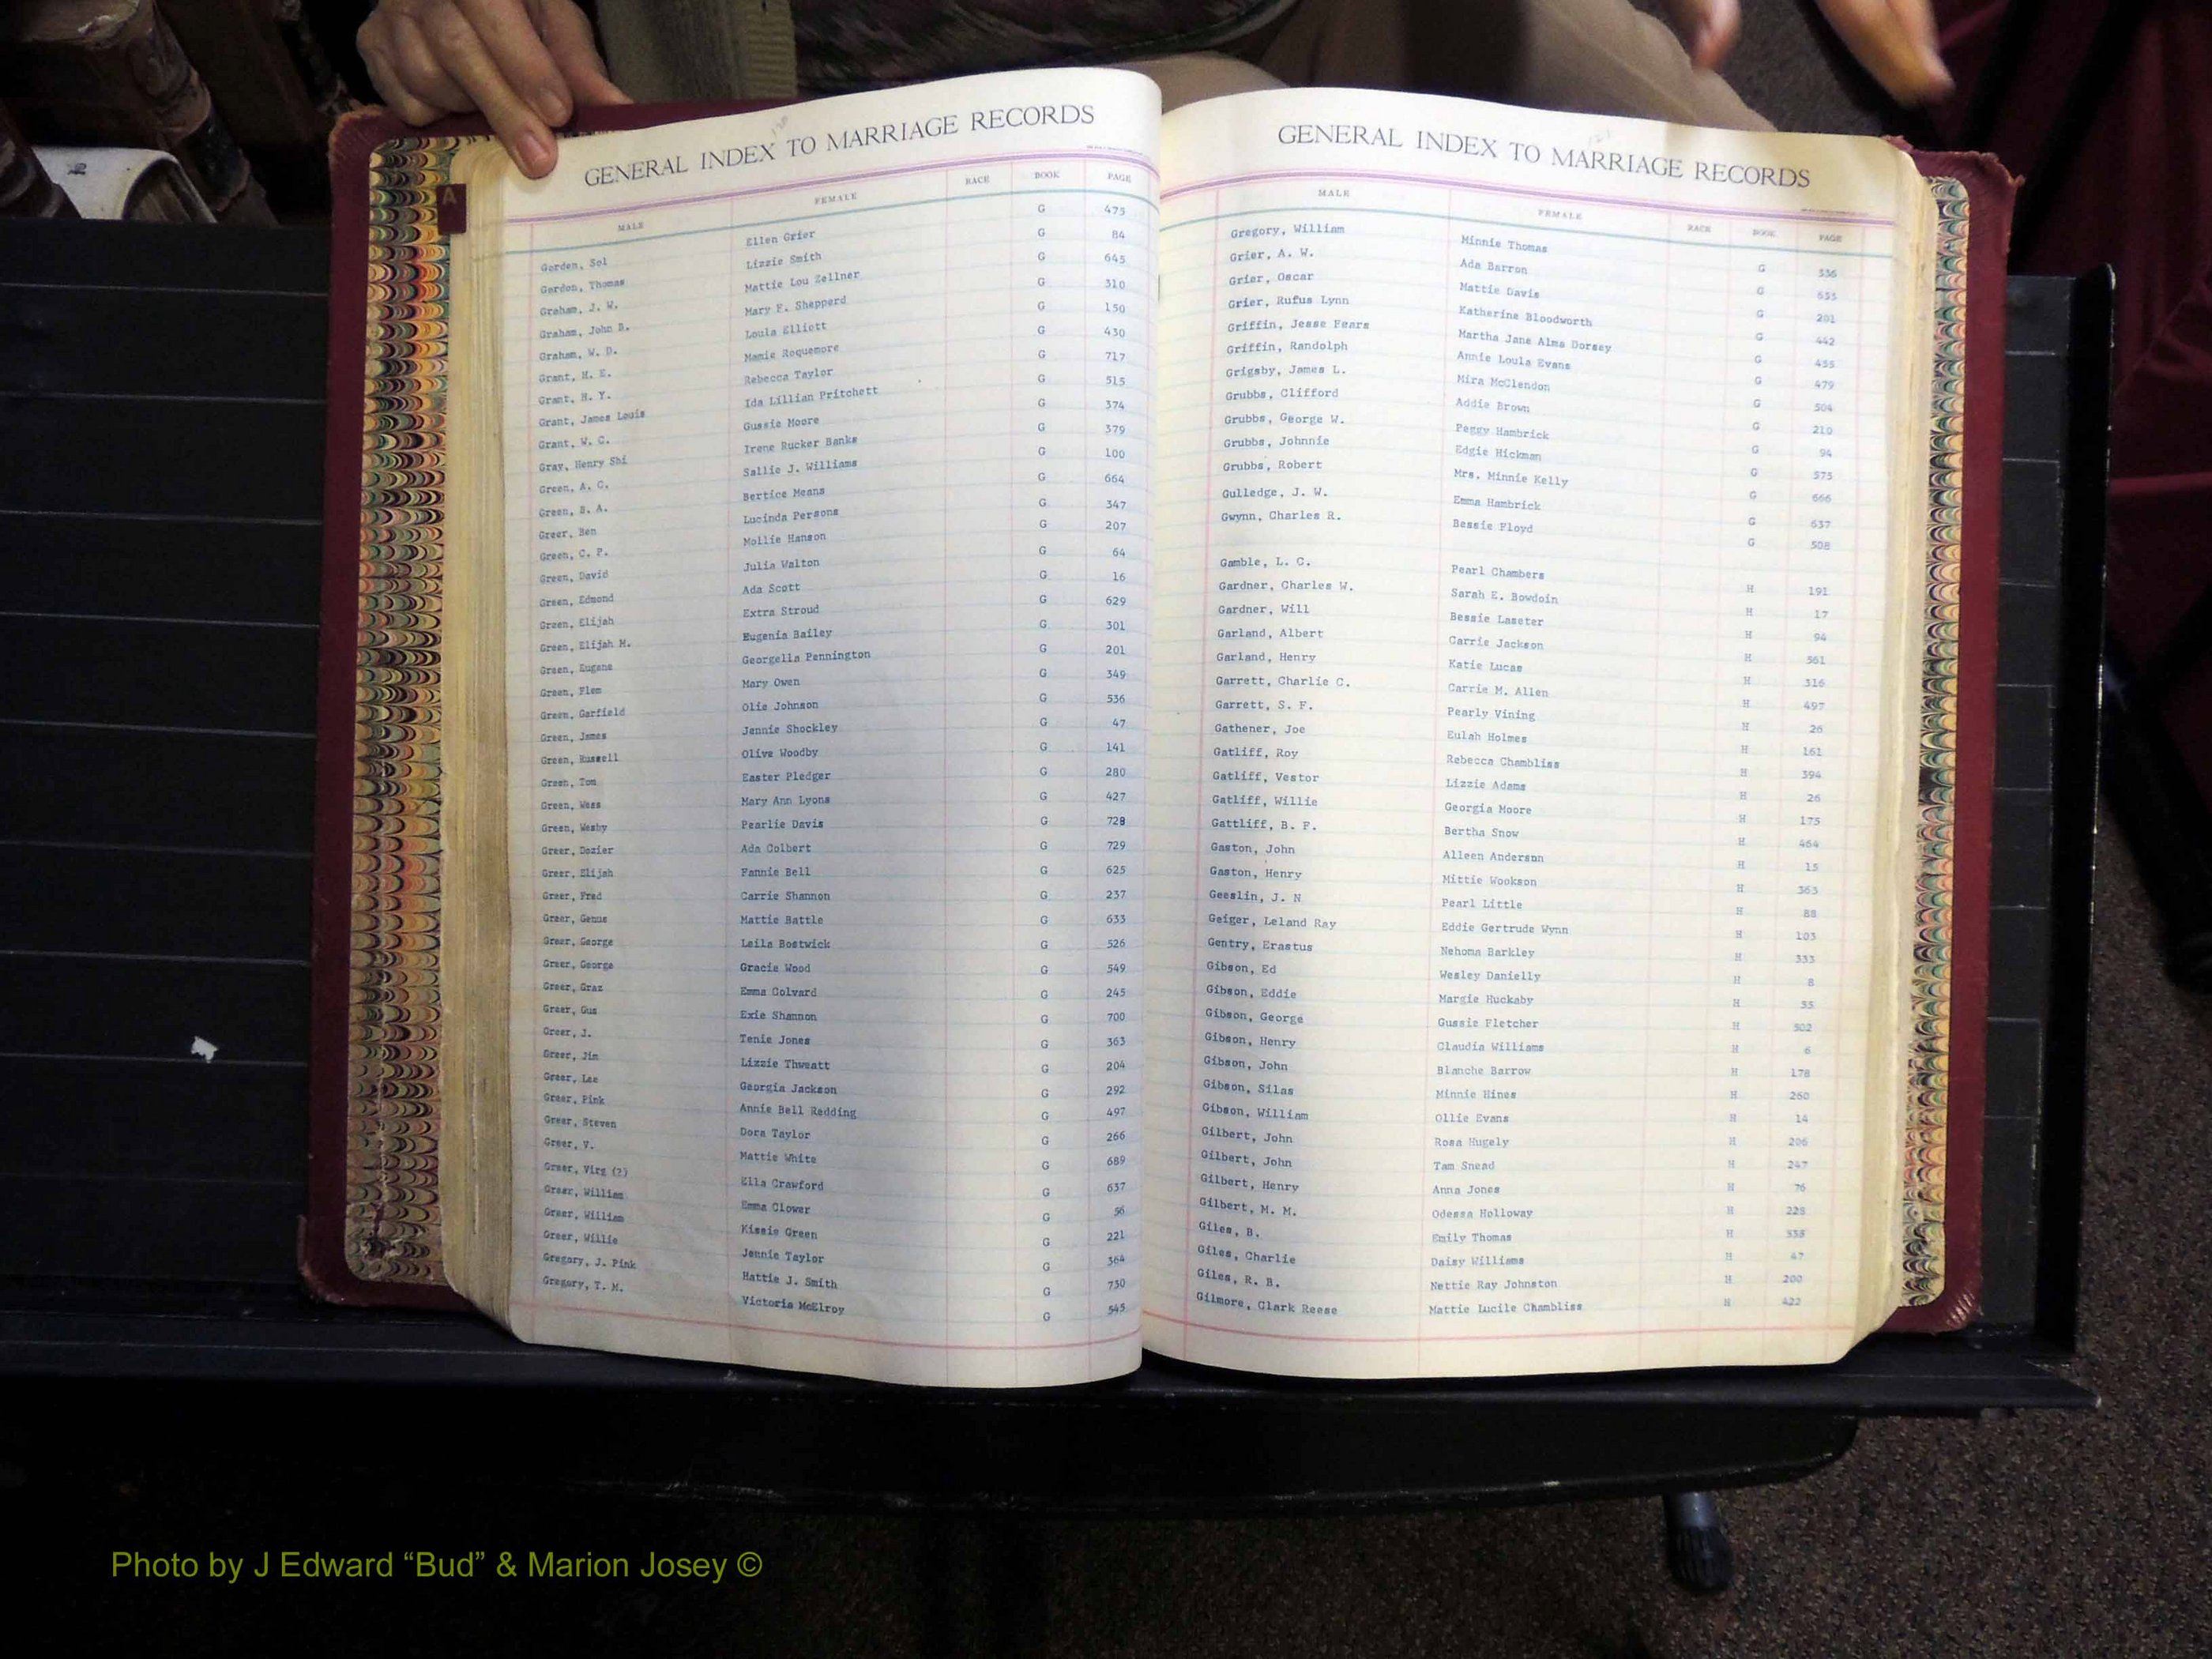 GENERAL INDEX TO MARRIAGE RECORDS
MALE FEMALE RACE BOOK PAGE
Gorden, Sol Ellen Grier G 475
Gordon, Thomas Lizzie Smith G 84
Graham, J. W. Mattie Lou Zellner G 645
Graham, John B. Mary F. Shepperd G 310
Graham, W. D. Loula Elliott G 150
Grant, H. E. Mamie Roquemore G 430
Grant, H. Y. Rebecca Taylor G 717
Grant, James Louis Ida Lillian Pritchett G 515
Grant, W. C. Gussie Moore G 374
Gray, Henry Shi Irene Rucker Banks G 379
Green, A. C. Sallie J. Williams G 100
Green, B. A. Bertice Means G 664
Greer, Ben Lucinda Persons G 347
Green, C. P. Mollie Hanson G 207
Green, David Julia Walton G 64
Green, Edmond Ada Scott G 16
Green, Elijah Extra Stroud G 629
Green, Elijah M. Eugenia Bailey G 301
Green, Eugene Georgella Pennington G 201
Green, Flem Mary Owen G 349
Green, Garfield Olie Johnson G 536
Green, James Jennie Shockley G 47
Green, Russell Olive Woodby G 141
Green, Tom Easter Pledger G 280
Green, Wess Mary Ann Lyons G 427
Green, Wesby Pearlie Davis G 728
Greer, Dozier Ada Colbert G 729
Greer, Elijah Fannie Bell G 625
Greer, Fred Carrie Shannon G 237
Greer, Genus Mattie Battle G 633
Greer, George Leila Bostwick G 526
Greer, George Gracie Wood G 549
Greer, Graz Emma Colvard G 245
Greer, Gus Exie Shannon G 700
Greer, J. Tenie Jones G 363
Greer, Jim Lizzie Thweatt G 204
Greer, Lee Georgia Jackson G 292
Greer, Pink Annie Bell Redding G 497
Greer, Steven Dora Taylor G 266
Greer, V. Mattie White G 689
Greer, Virg (?) Ella Crawford G 637
Greer, William Emma Clower G 56
Greer, William Kissie Green G 221
Greer, Willie Jennie Taylor G 364
Gregory, J. Pink Hattie J. Smith G 730
Gregory, T. M. Victoria McElroy G 545
GENERAL INDEX TO MARRIAGE RECORDS
MALE FEMALE RACE BOOK PAGE
Gregory, William Minnie Thomas G 336
Grier, A. W. Ada Barron G 633
Grier, Oscar Mattie Davis G 201
Grier, Rufus Lynn Katherine Bloodworth G 442
Griffin, Jesse Fears Martha Jane Alma Dorsey G 455
Griffin, Randolph Annie Loula Evans G 479
Grigsby, James L. Mira McClendon G 504
Grubbs, Clifford Addie Brown G 210
Grubbs, George W. Peggy Hambrick G 94
Grubbs, Johnnie Edgie Hickman G 575
Grubbs, Robert Mrs. Minnie Kelly G 666
Gulledge, J. W. Emma Hambrick G 637
Gwynn, Charles R. Bessie Floyd G 508
Gamble, L. C. Pearl Chambers H 191
Gardner, Charles W. Sarah E. Bowdoin H 17
Gardner, Will Bessie Lasseter H 94
Garland, Albert Carrie Jackson H 561
Garland, Henry Katie Lucas H 316
Garrett, Charlie C. Carrie M. Allen H 497
Garrett, S. F. Pearly Vining H 26
Gathener, Joe Eulah Holmes H 161
Gatliff, Roy Rebecca Chambliss H 394
Gatliff, Vestor Lizzie Adams H 26
Gatliff, Willie Georgia Moore H 175
Gattliff, B. F. Bertha Snow H 464
Gaston, John Alleen Anderson H 15
Gaston, Henry Mittie Wookson H 363
Geeslin, J. N Pearl Little H 88
Geiger, Leland Ray Eddie Gertrude Wynn H 103
Gentry, Erastus Nehoma Barkley H 333
Gibson, Ed Wesley Danielly H 8
Gibson, Eddie Margie Huckaby H 55
Gibson, George Gussie Fletcher H 302
Gibson, Henry Claudia Williams H 6
Gibson, John Blanche Barrow H 178
Gibson, Silas Minnie Hines H 260
Gibson, William Ollie Evans H 14
Gilbert, John Rosa Hugely H 206
Gilbert, John Tam Snead H 247
Gilbert, Henry Anna Jones H 76
Gilbert, M. M. Odessa Holloway H 228
Giles, B. Emily Thomas H 335
Giles, Charlie Daisy Williams H 47
Giles, R. B. Nettie Ray Johnston H 200
Gilmore, Clark Reese Mattie Lucile Chambliss H 422
A
Photo by J Edward “Bud” & Marion Josey ©